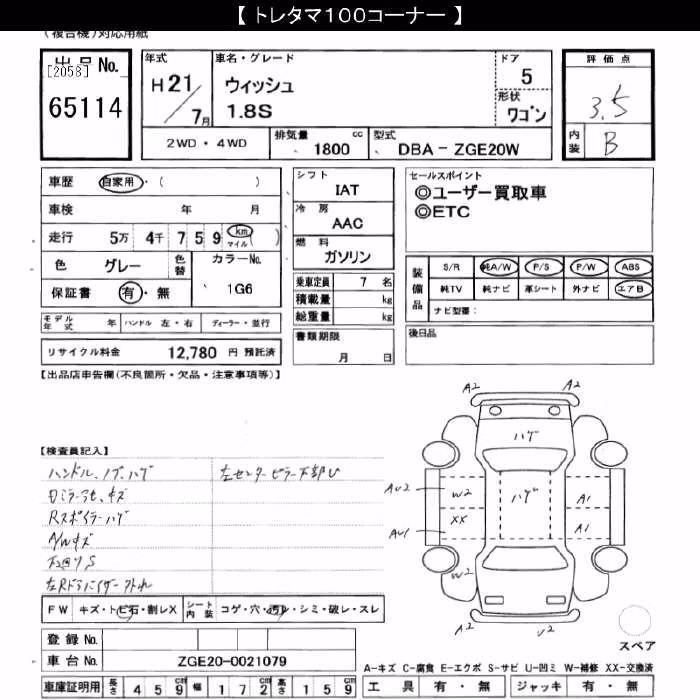 【 トレタマ100コーナー 】
(複合機)対応用紙
出品 No.
[2058]
65114
年式
H21/7月
車名・グレード
ウィッシュ
1.8S
ドア
5
形状
ワゴン
評価点
3.5
内装
B
2WD・4WD
排気量 1800 cc
型式 DBA - ZGE20W
車歴 自家用・( )
車検 年 月
走行 5万 4千 7 5 9 km マイル ( )
色 グレー 色替 カラーNo.
保証書 有・無 1G6
シフト IAT
冷房 AAC
燃料 ガソリン
乗車定員 7 名
積載量 kg
総重量 kg
書類期限
月 日
セールスポイント
◎ユーザー買取車
◎ETC
装備品
S/R 純A/W P/S P/W ABS
純TV 純ナビ 革シート 外ナビ エアB
ナビ型番:
後日品
モデル年式 年 ハンドル 左・右 ディーラー・並行
リサイクル料金 12,780 円 預託済
【出品店申告欄(不良箇所・欠品・注意事項等)】
【検査員記入】
ハンドル、ノブ、ハゲ
左センターピラー下部U
Rスポイラーハゲ
A/Wキズ
FW キズ・トビ石・割レX シート内装 コゲ・穴・汚レ・シミ・破レ・スレ
登録 No.
車台 No. ZGE20-0021079
車庫証明用 長さ 4 5 9 幅 1 7 2 高さ 1 5 9
A2
A2
ハゲ
AU2
W2
ハゲ
A1
XX
AU1
A1
W2
A2
U2
スペア
A-キズ C-腐食 E-エクボ S-サビ U-凹ミ W-補修 XX-交換済
工具 有・無 ジャッキ 有・無